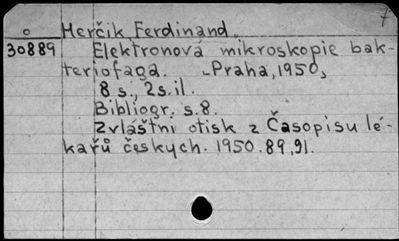 7
o Herčík Ferdinand.
30889 Elektronová mikroskopie bak-
teriofaga. -Praha, 1950,
8 s., 2 s. il.
Bibliogr. s. 8.
Zvláštní otisk z Časopisu lé-
kařů českych. 1950. 89, 91.